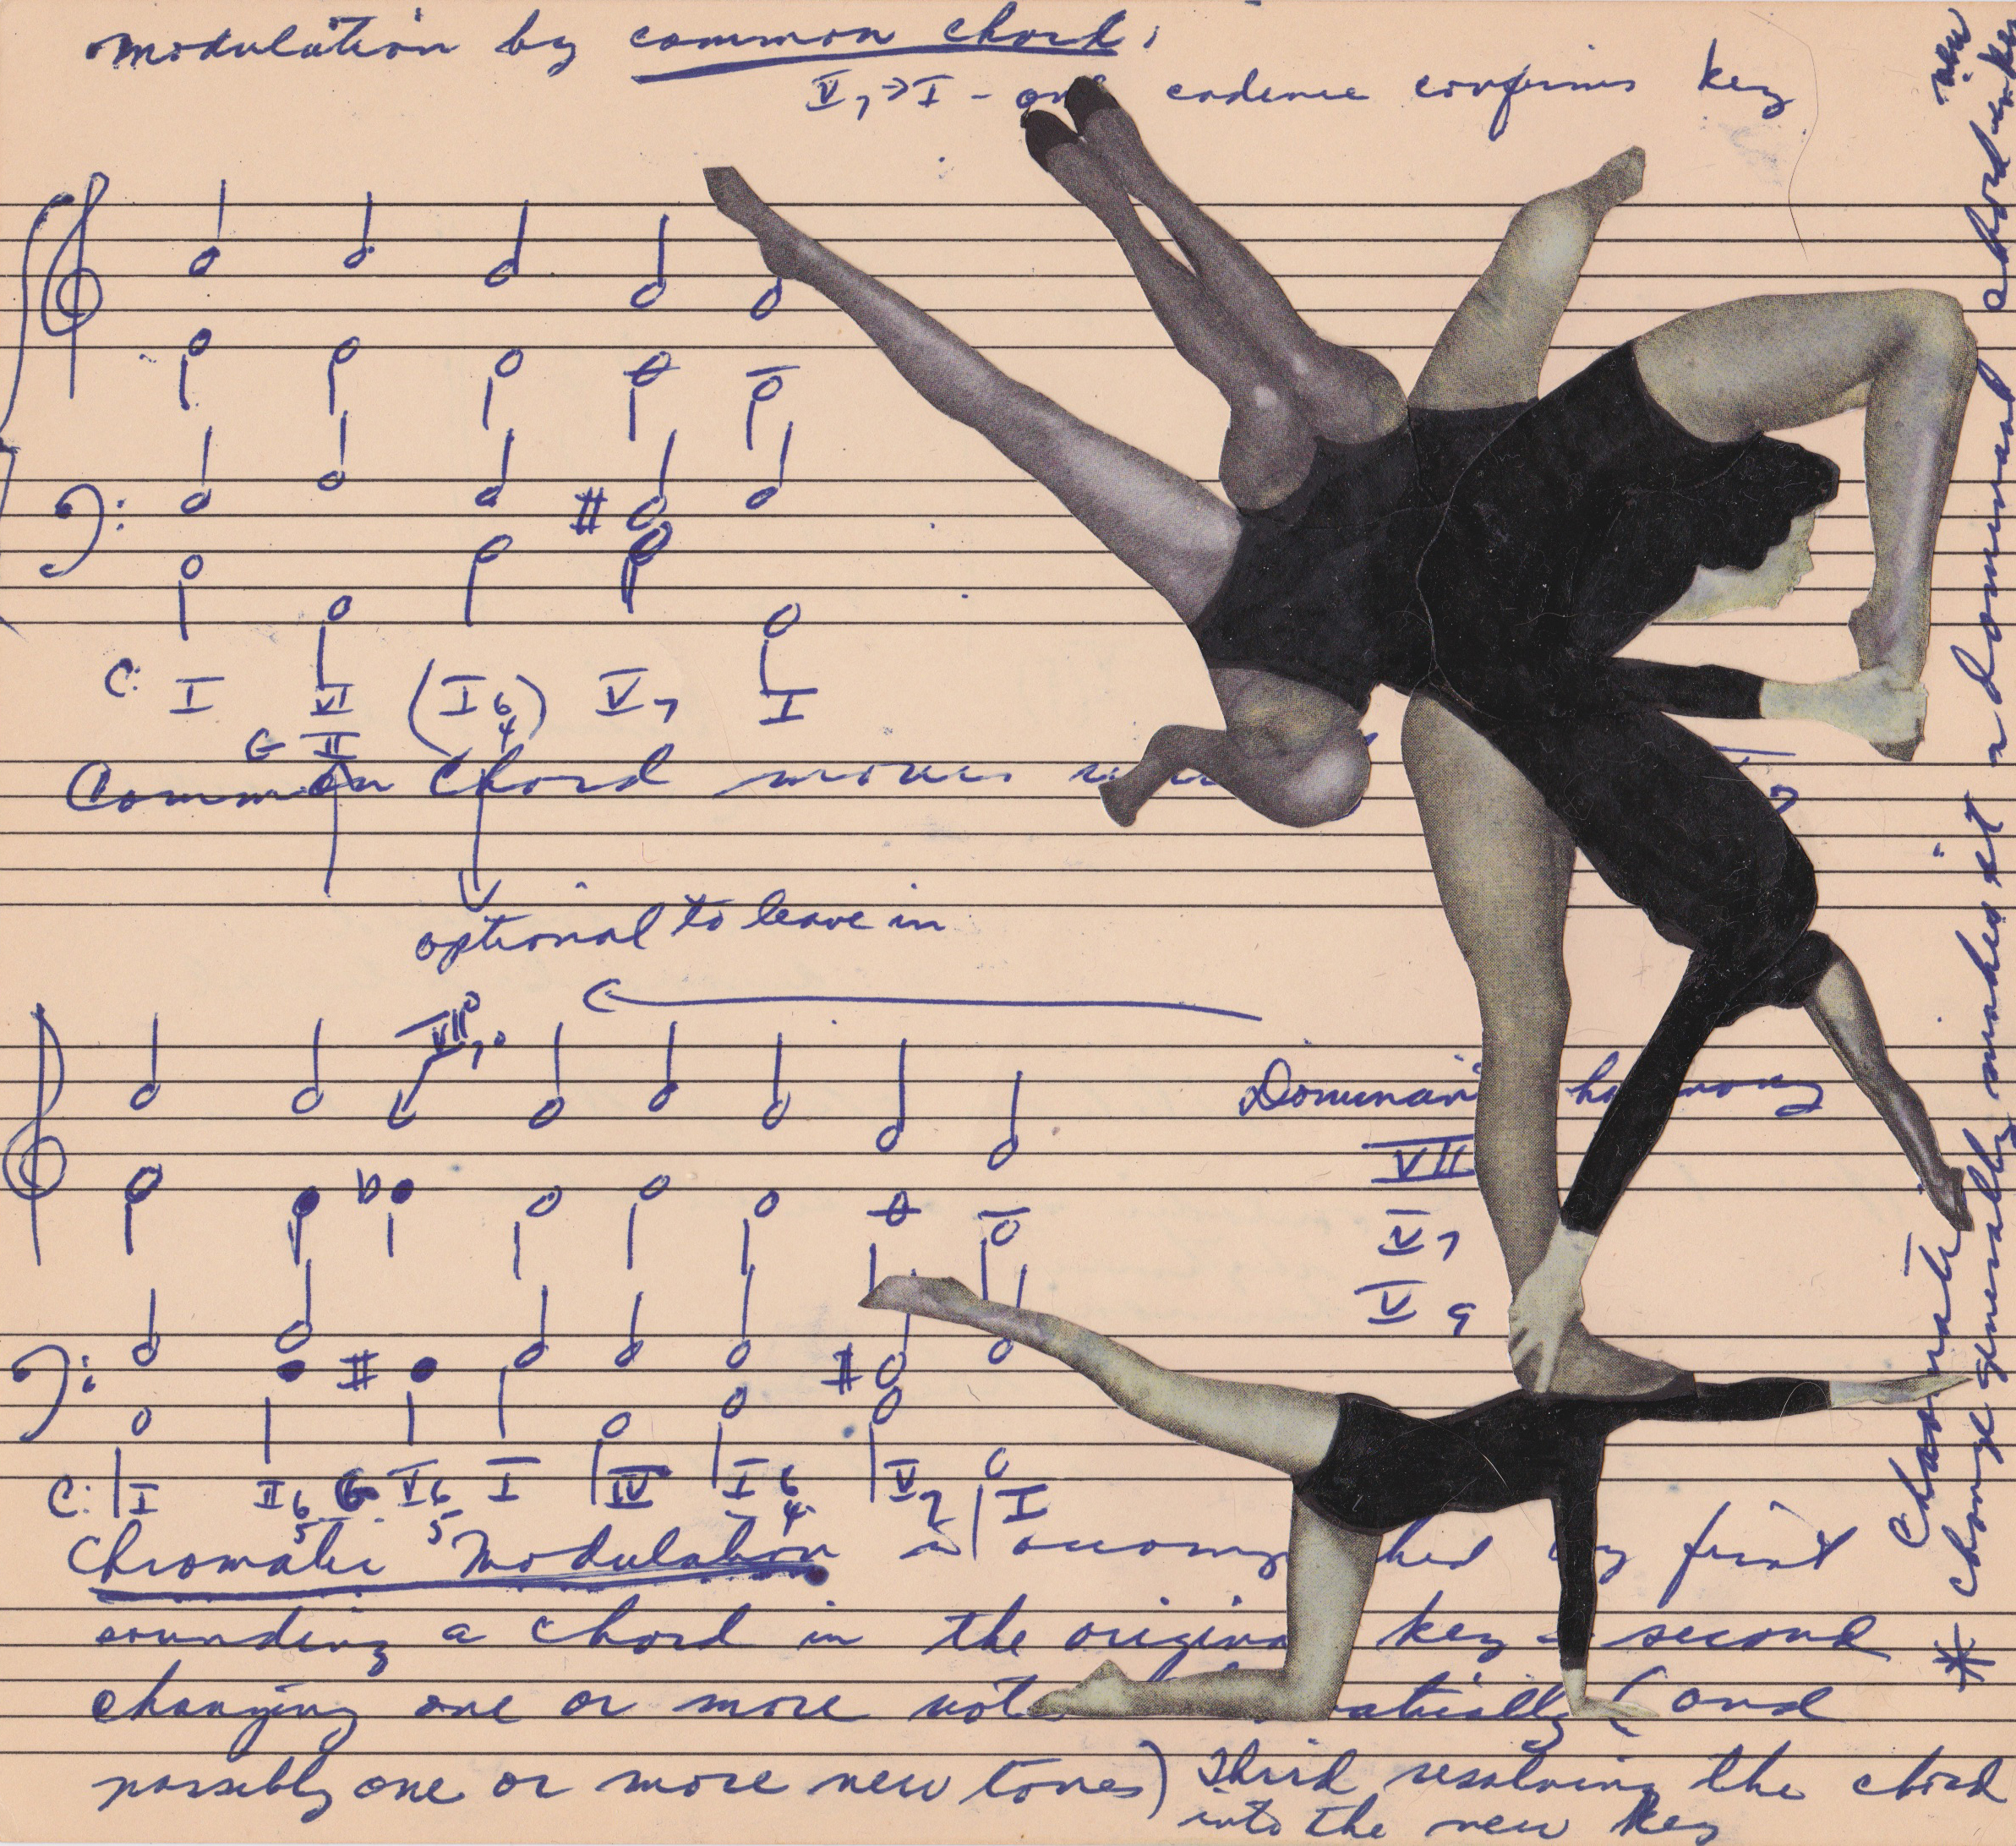 modulation by common chord;
V7→I - cadence confirms key
C: I VI (I6 4) V7 I
G II
Common chord moves
optional to leave in
VII°7
Dominant harmony
VII
V7
V9
C: I II6 5 G V6 5 I IV I6 4 V7 I
Chromatic Modulation is accomp hed by first
sounding a chord in the origina key - second
changing one or more not atically (and
possibly one or more new tones) Third resolving the chord
into the new key
Chromatic
* change generally makes it a dominant chord in
new key